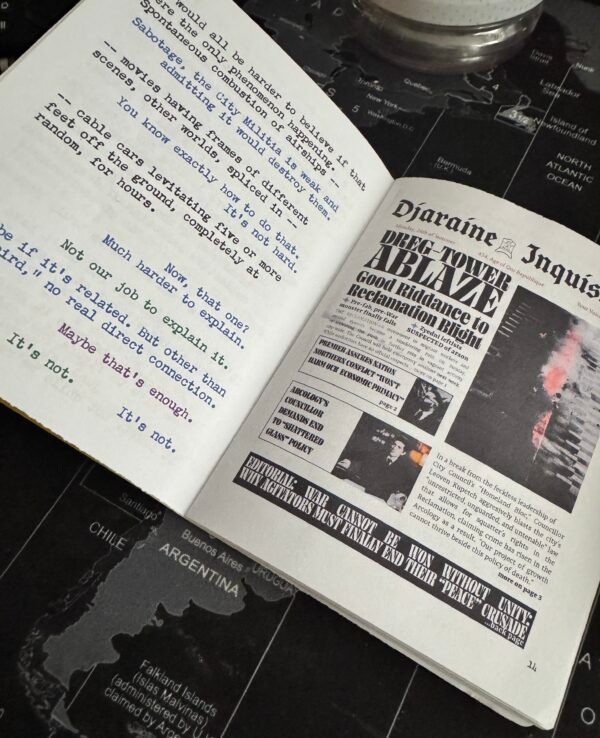 would all be harder to believe if that
ere the only phenomenon happening.
Spontaneous combustion of airships --
Sabotage, the City Militia is weak and
admitting it would destroy them.
You know exactly how to do that.
It's not hard.
-- movies having frames of different
scenes, other worlds, spliced in --
-- cable cars levitating five or more
feet off the ground, completely at
random, for hours.
Now, that one?
Much harder to explain.
Not our job to explain it.
be if it's related. But other than
ird," no real direct connection.
Maybe that's enough.
It's not.
It's not.
Djaraine Inquis
DREG-TOWER
ABLAZE
Good Riddance to
Reclamation Blight
Pre-fab, pre-War
monster finally falls
Zyedni leftists
SUSPECTED of arson
PREMIER ASSURES NATION
NORTHERN CONFLICT "WON'T
HARM OUR ECONOMIC PRIMACY"
page 2
ARCOLOGY'S
COUNCILLOR
DEMANDS END
TO "SHATTERED
GLASS" POLICY
In a break from the feckless leadership of
City Council's "Homeland Bloc," Councillor
Leoven Rupetsch aggressively blasts the city's
"unrestricted, unguarded, and untenable" law
that allows for squatter's rights in the
Reclamation, claiming crime has risen in the
Arcology as a result. "Our project of growth
cannot thrive beside this policy of death."
more on page 3
EDITORIAL: WAR CANNOT BE WON WITHOUT UNITY:
WHY AGITATORS MUST FINALLY END THEIR "PEACE" CRUSADE
...back page
14
Labrador
Sea
Island of
Newfoundland
New York
Washington D.C.
Bermuda
(U.K.)
NORTH
ATLANTIC
OCEAN
Santiago
CHILE
Buenos Aires
URUGU
ARGENTINA
Falkland Islands
(Islas Malvinas)
(administered by U.
claimed by Arge